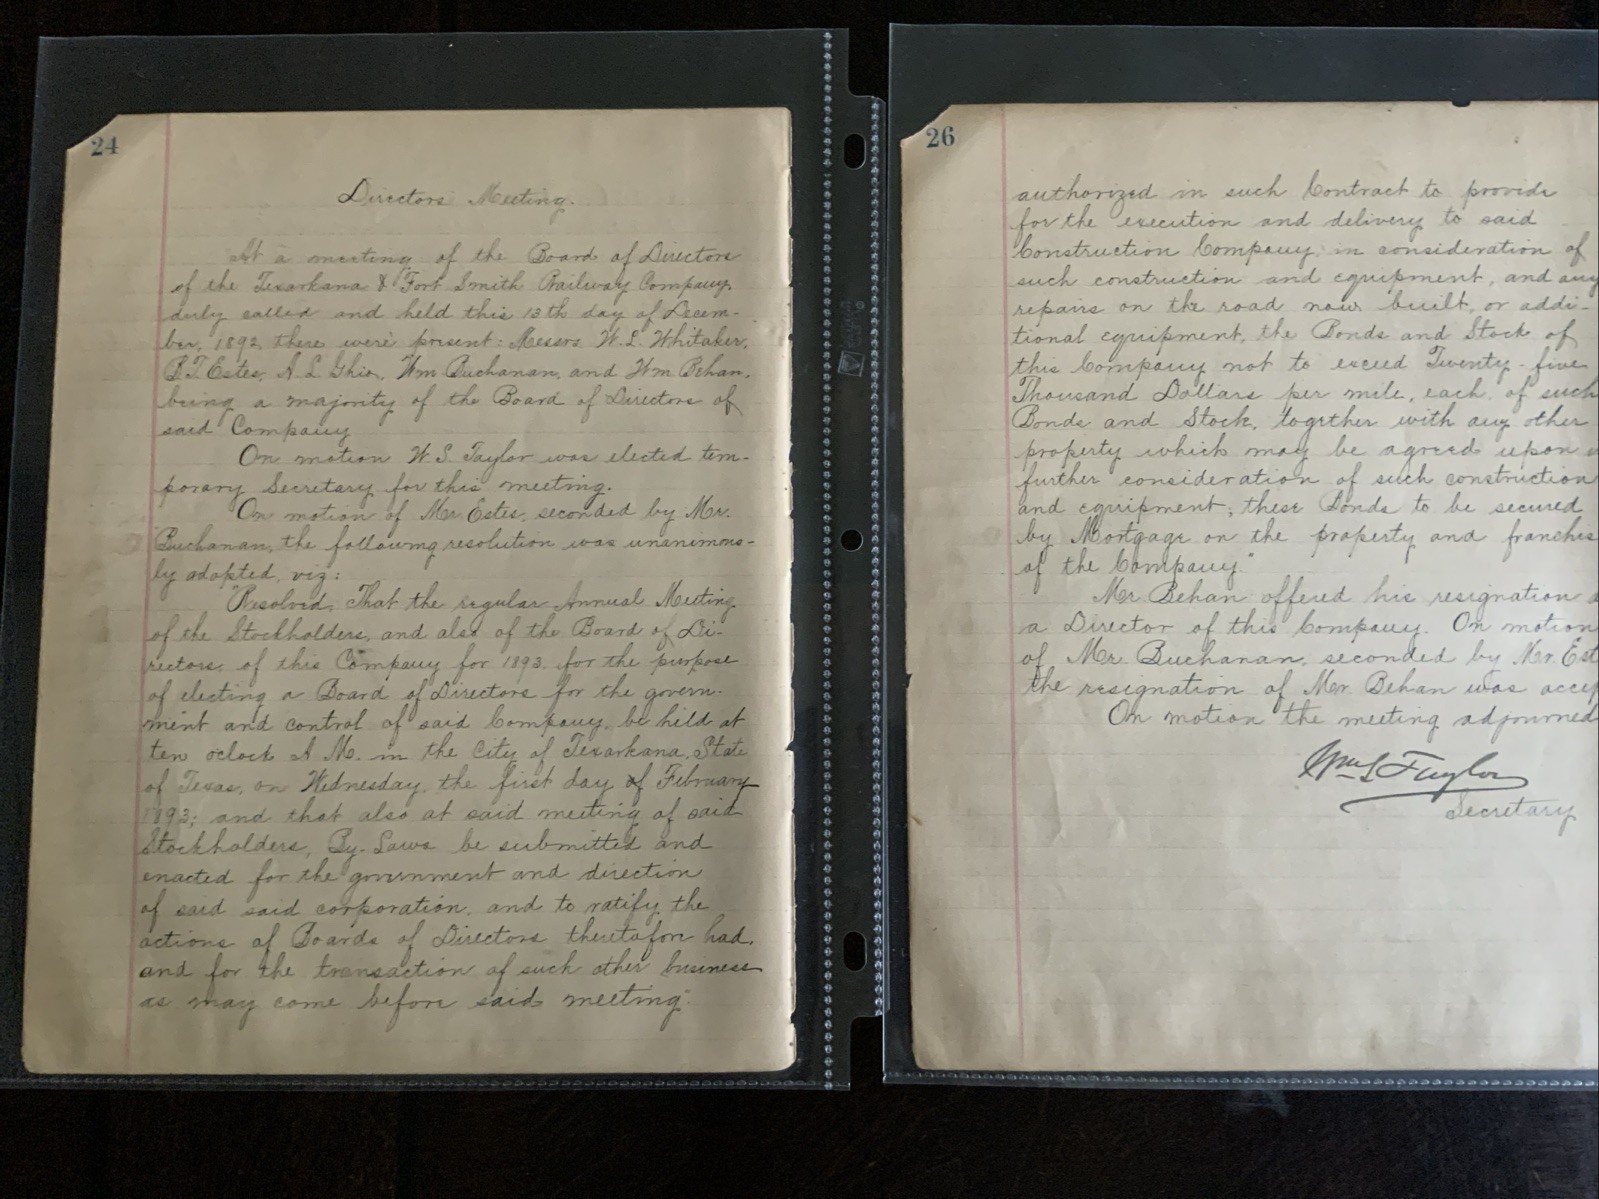 24
Directors Meeting.
At a meeting of the Board of Directors
of the Texarkana & Fort Smith Railway Company,
duly called and held this 13th day of Decem-
ber, 1892, there were present: Messrs W. L. Whitaker,
B. T. Estes, A. L. Ghio, Wm Buchanan, and Wm Behan,
being a majority of the Board of Directors of
said Company
On motion W. S. Taylor was elected tem-
porary Secretary for this meeting.
On motion of Mr Estes, seconded by Mr.
Buchanan, the following resolution was unanimous-
ly adopted, viz:
"Resolved, That the regular Annual Meeting
of the Stockholders, and also of the Board of Di-
rectors, of this Company for 1893, for the purpose
of electing a Board of Directors for the govern-
ment and control of said Company, be held at
ten oclock A M. in the City of Texarkana, State
of Texas, on Wednesday, the first day of February
1893; and that also at said meeting of said
Stockholders, By-Laws be submitted and
enacted for the government and direction
of said said corporation, and to ratify the
actions of Boards of Directors theretofore had,
and for the transaction of such other business
as may come before said meeting."
26
authorized in such Contract to provide
for the execution and delivery to said
Construction Company, in consideration of
such construction and equipment, and any
repairs on the road now built, or addi-
tional equipment, the Bonds and Stock of
this Company not to exceed Twenty-five
Thousand Dollars per mile, each, of such
Bonds and Stock, together with any other
property which may be agreed upon
further consideration of such construction
and equipment; these Bonds to be secured
by Mortgage on the property and franchis
of the Company."
Mr. Behan offered his resignation a
a Director of this Company. On motion
of Mr. Buchanan, seconded by Mr. Est
the resignation of Mr. Behan was accep
On motion the meeting adjourned
Wm S Taylor
Secretary